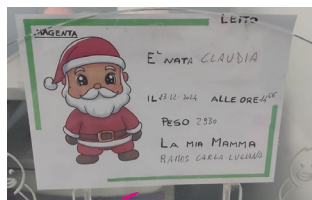 MAGENTA
LETTO
E' NATA CLAUDIA
IL 13-12-2024 ALLE ORE
PESO 2930
LA MIA MAMMA
RAMOS CARLA LUCIANA